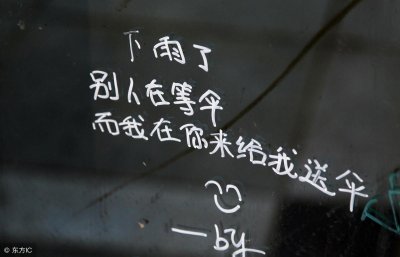 下雨了
别人在等伞
而我在你来给我送伞
一by
©东方IC